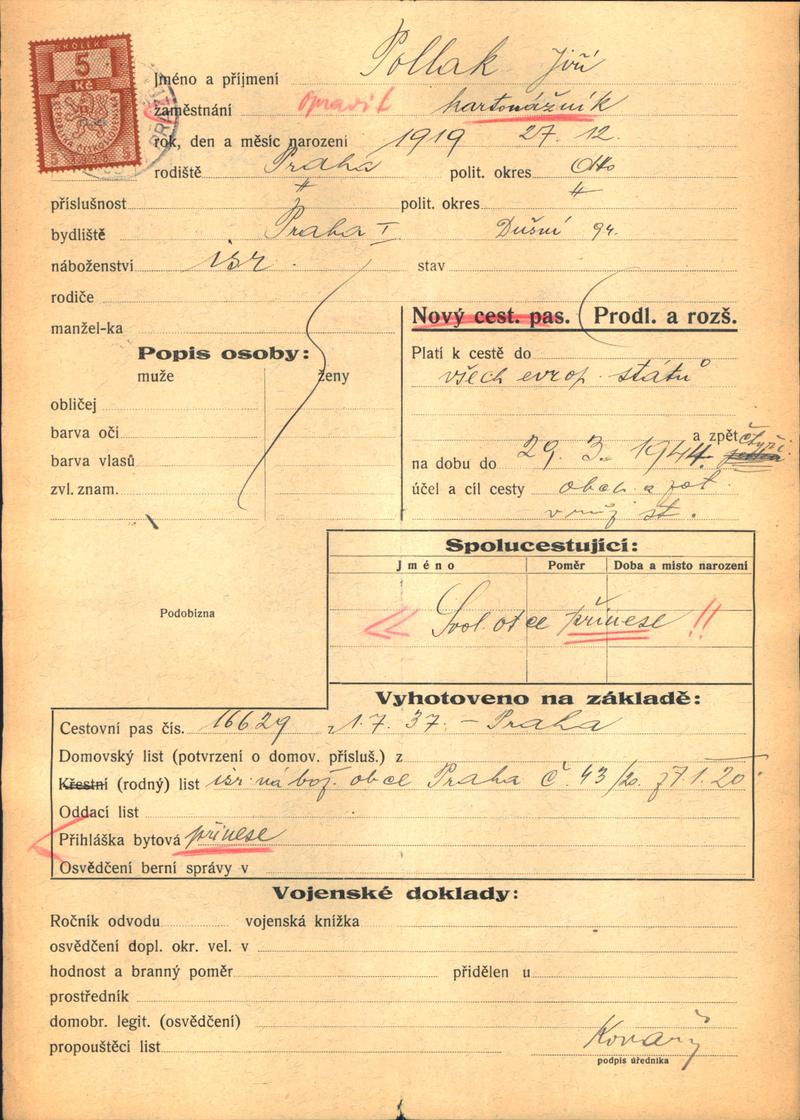 KOLEK
5
Kč
Pollak Jiří
Jméno a příjmení
zaměstnání opravit kartonážník
rok, den a měsíc narození 1919 27. 12.
rodiště Praha polit. okres dtto
příslušnost " polit. okres "
bydliště Praha I Dušní 94.
náboženství isr. stav
rodiče
manžel-ka
Nový cest. pas. Prodl. a rozš.
Popis osoby:
muže ženy
obličej
barva oči
barva vlasů
zvl. znam.
Platí k cestě do
všech evrop. států
a zpět čtyři
na dobu do 29. 3. 1944.
účel a cíl cesty obch a
st.
Spolucestující:
Jméno Poměr Doba a misto narození
Podobizna
Svol. otce přinese !!
Vyhotoveno na základě:
Cestovní pas čís. 16629 1.7. 37. – Praha
Domovský list (potvrzení o domov. přísluš.) z
Křestní (rodný) list isr. nábož. obce Praha č. 43/20. z 7.1.20
Oddací list
Přihláška bytová přinese
Osvědčení berní správy v
Vojenské doklady:
Ročník odvodu vojenská knížka
osvědčení dopl. okr. vel. v
hodnost a branný poměr přidělen u
prostředník
domobr. legit. (osvědčení)
propouštěcí list Kovařy
podpis úředníka